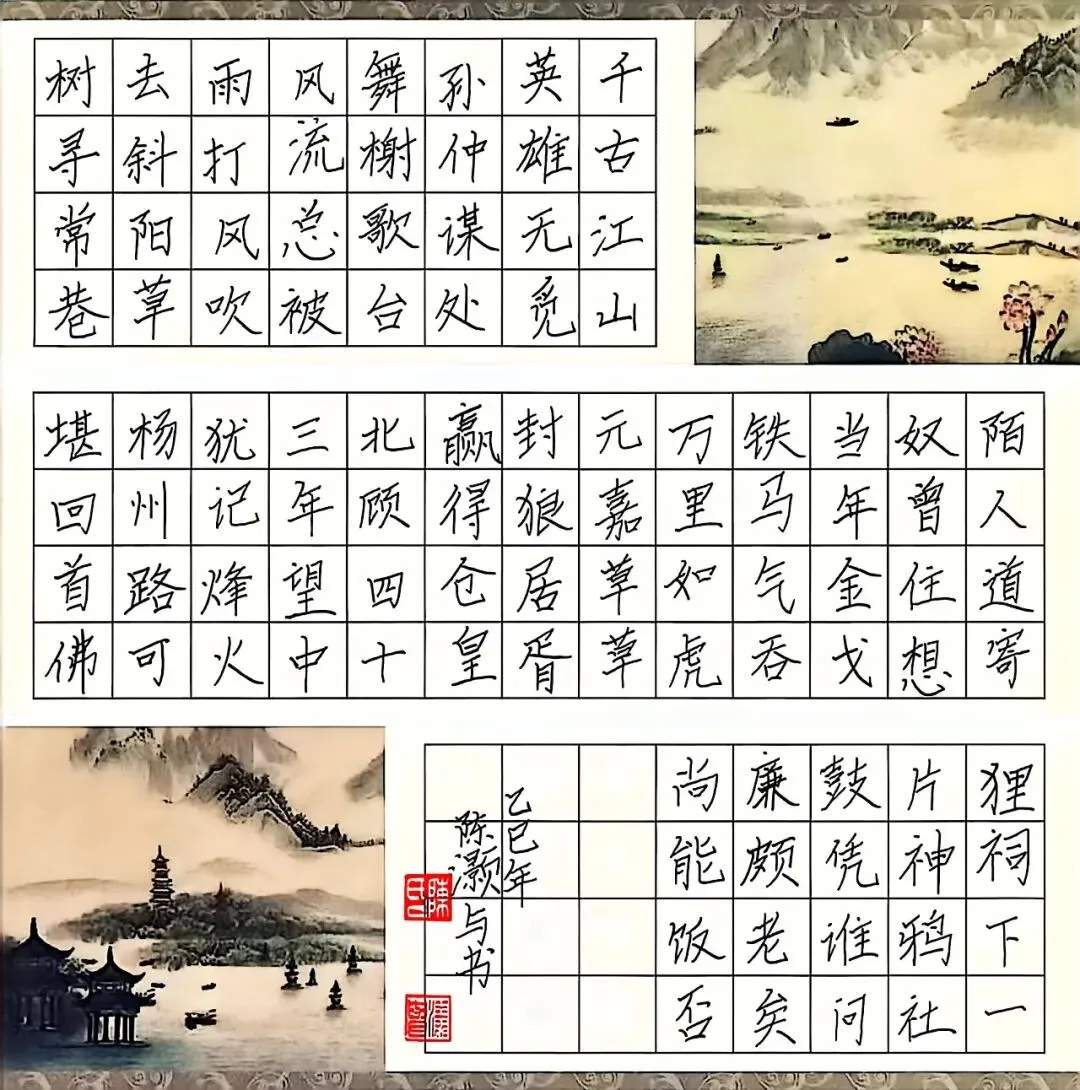 千古江山
英雄无觅
孙仲谋处
舞榭歌台
风流总被
雨打风吹
去斜阳草
树寻常巷
陌人道寄
奴曾住想
当年金戈
铁马气吞
万里如虎
元嘉草草
封狼居胥
赢得仓皇
北顾四十
三年望中
犹记烽火
杨州路可
堪回首佛
狸祠下一
片神鸦社
鼓凭谁问
廉颇老矣
尚能饭否
乙巳年
陈灏与书
陳氏